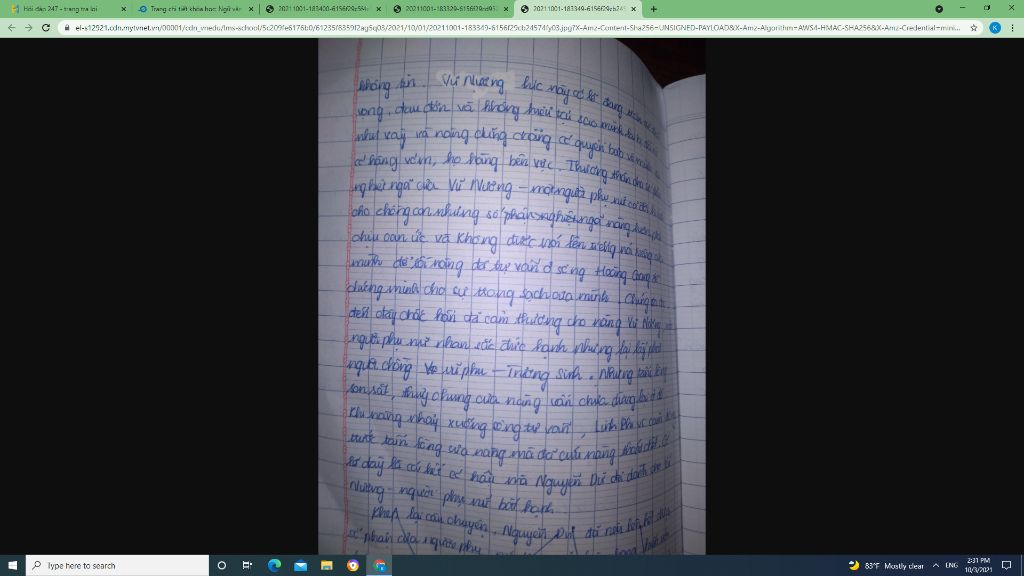 Hỏi đáp 247 - trang tra loi
Trang chi tiết khóa học: Ngữ văn
20211001-183400-6156f29c5f4
20211001-183329-6156f29d93
20211001-183349-6156f29cb245
el-s12921.cdn.mytvnet.vn/00001/cdn_vnedu/lms-school/5c209fe6176b0/61235f8359f2ag5q03/2021/10/01/20211001-183349-6156f29cb24574fy03.jpg?X-Amz-Content-Sha256=UNSIGNED-PAYLOAD&X-Amz-Algorithm=AWS4-HMAC-SHA256&X-Amz-Credential=mini...
K
không tin. Vũ Nương lúc này có lẽ đang
vọng, đau đớn và không hiểu tại sao mình
như vậy và nàng cũng chẳng có quyền bảo vệ
có hàng xóm, họ hàng bênh vực. Thương thân cho
nghiệt ngã của Vũ Nương - một người phụ nữ
cho chồng con nhưng số phận nghiệt ngã nàng
chịu oan ức và không được nói lên
mình để rồi nàng đã tự vẫn ở sông Hoàng Giang
chứng minh cho sự trong sạch của mình. Chúng ta
đến đây chắc hẳn đã cảm thương cho nàng Vũ Nương
người phụ nữ nhan sắc đức hạnh nhưng lại lấy phải
người chồng vũ phu - Trương Sinh. Nhưng tấm lòng
son sắt, thủy chung của nàng vẫn chưa dừng lại ở đó
Khi nàng nhảy xuống sông tự vẫn, Linh Phi vì cảm
trước tấm lòng của nàng mà đã cứu nàng
lẽ đây là cái kết có hậu mà Nguyễn Dữ chỉ dành cho
Nương - người phụ nữ bất hạnh.
lại câu chuyện, Nguyễn Dữ đã nêu
số phận của người phụ
Type here to search
83°F Mostly clear
ENG
2:31 PM
10/3/2021